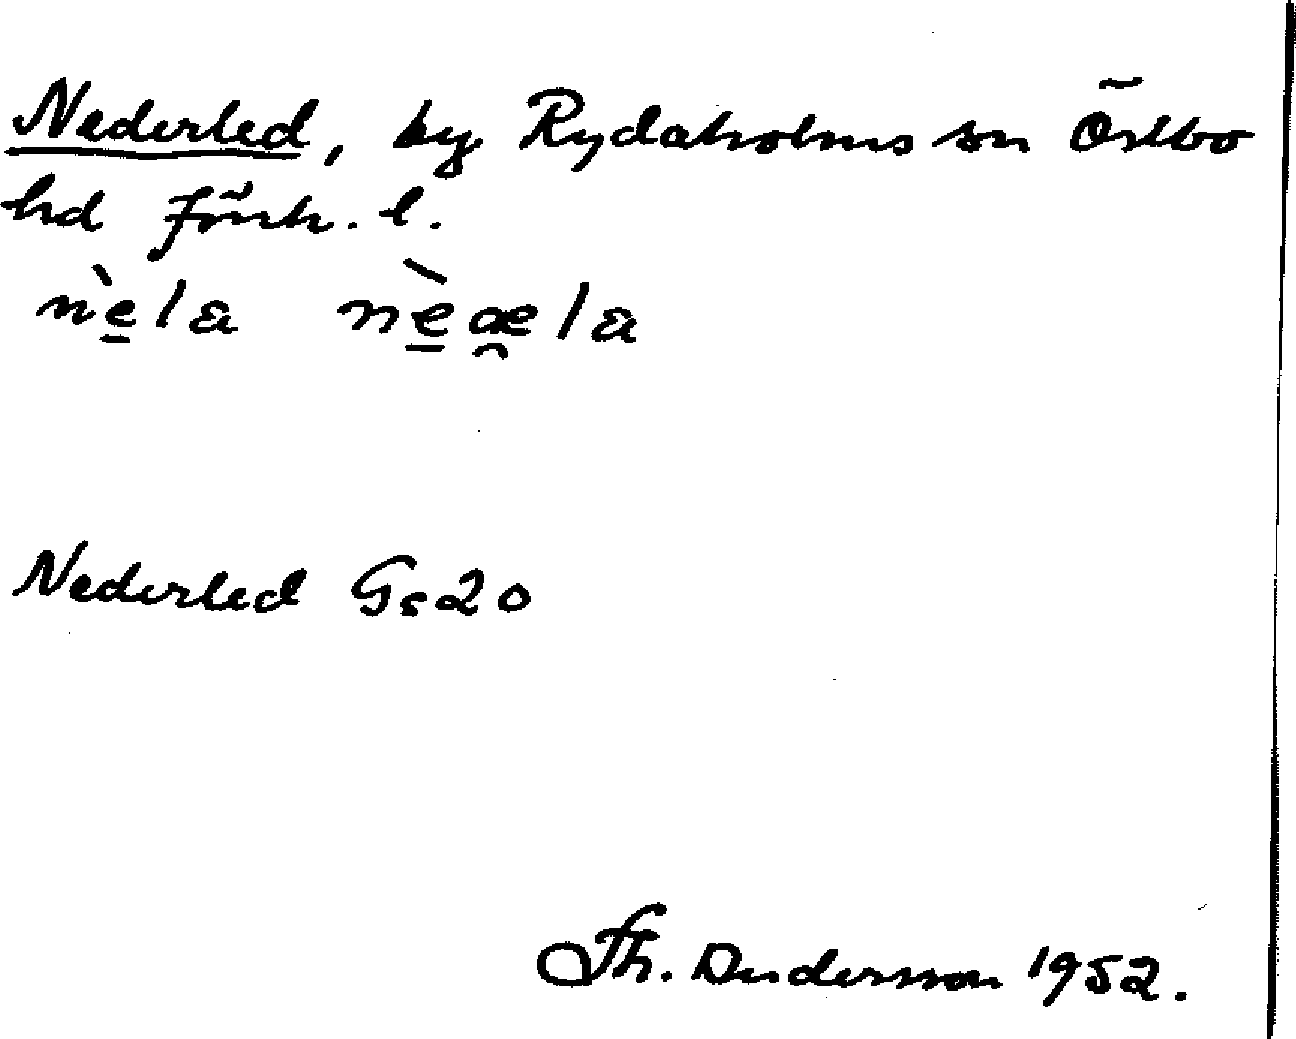 Nederled, by Rydaholms sn Östbo
hd Jönk. l.
nèla nèæla
Nederled Gs20
Th. Andersson 1952.